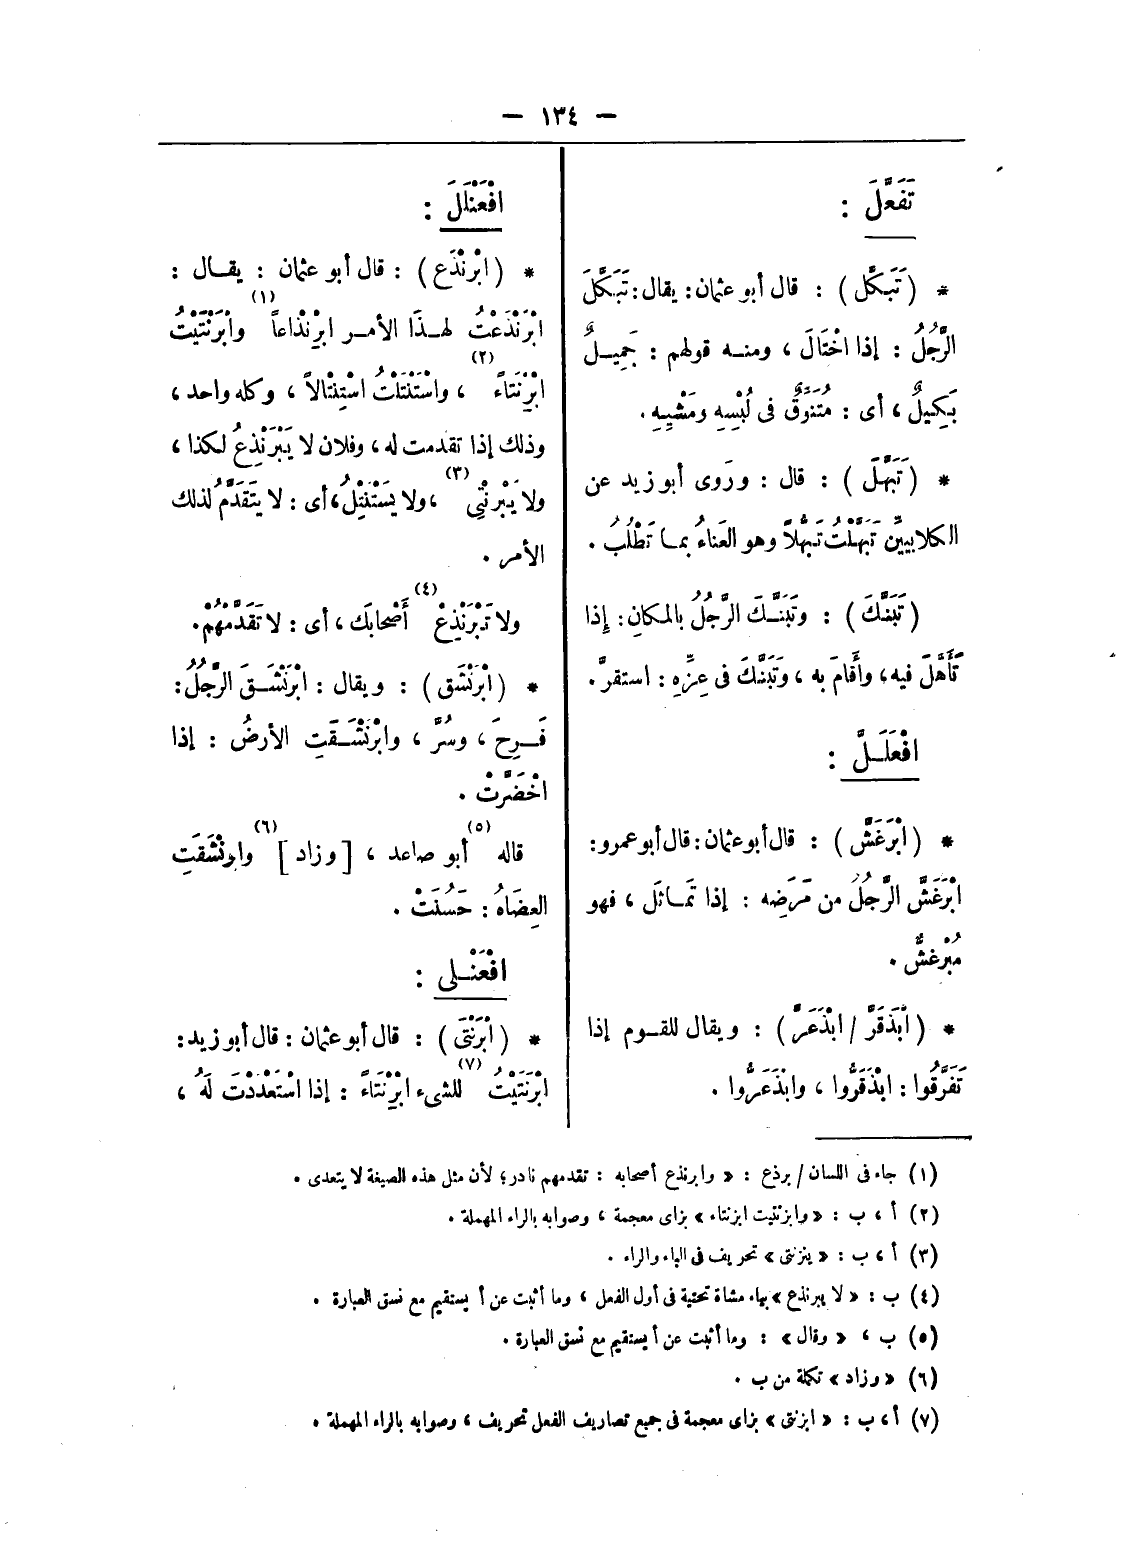 — ١٣٤ —
تَفَعَّلَ :
* ( تَبَكَّل ) : قال أبو عثمان : يقال : تَبَكَّلَ
الرَّجُلُ : إذا اخْتَالَ ، ومنه قولهم : جَمِيلٌ
بَكِيلٌ ، أى : مُتَنَوِّقٌ فى لُبْسِهِ ومَشْيِهِ .
* ( تَبَهَّلَ ) : قال : ورَوى أبو زيد عن
الكلابيين تَبَهَّلْتُ تَبَهُّلاً وهو العَناءُ بما تَطْلُبُ .
( تَبَنَّكَ ) : وتَبَنَّكَ الرَّجُلُ بالمكانِ : إِذا
تَأَهَّلَ فيه ، وأَقامَ به ، وتَبَنَّكَ فى عِزِّه : استقرَّ .
افْعَلَلَّ :
* ( ابْرَغَشَّ ) : قال أبو عثمان : قال أبو عمرو :
ابْرَغَشَّ الرَّجُلُ من مَرَضِه : إذا تَمَاثَل ، فهو
مُبْرَغِشٌّ .
* ( ابْذَقَرَّ / ابْذَعَرَّ ) : ويقال للقوم إذا
تَفَرَّقُوا : ابْذَقَرُّوا ، وابْذَعَرُّوا .
افْعَنْلَلَ :
* ( ابْرَنْذَع ) : قال أبو عثمان : يقال :
ابْرَنْذَعْتُ لهذَا الأمر ابْرِنْذاعاً (١) وابْرَنْتَيْتُ
ابْرِنْتَاءً (٢) ، واسْتَنْتَلْتُ اسْتِنْتالاً ، وكله واحد ،
وذلك إذا تقدمت له ، وفلان لا يَبْرَنْذِعُ لكذا ،
ولا يَبْرنْتِى (٣) ، ولا يَسْتَنْتِلُ ، أى : لا يَتَقَدَّمُ لذلك
الأمر .
ولا تَبْرَنْذِعْ (٤) أَصْحابَك ، أى : لا تَقَدَّمْهُمْ .
* ( ابْرَنْشَق ) : ويقال : ابْرَنْشَقَ الرَّجُلُ :
فَرِحَ ، وسُرَّ ، وابْرَنْشَقَتِ الأرضُ : إذا
اخْضَرَّتْ .
قاله (٥) أبو صاعد ، [ وزاد ] (٦) وابرنْشَقَتِ
العِضَاهُ : حَسُنَتْ .
افْعَنْلى :
* ( ابْرَنْتَى ) : قال أبو عثمان : قال أبو زيد :
ابْرَنْتَيْتُ (٧) للشىء ابْرِنْتَاءً : إذا اسْتَعْدَدْتَ لَهُ ،
(١) جاء فى اللسان / برذع : « وابرنذع أصحابه : تقدمهم نادر ؛ لأن مثل هذه الصيغة لا يتعدى .
(٢) أ ، ب : « وابزنتيت ابزنتاء » بزاى معجمة ، وصوابه بالراء المهملة .
(٣) أ ، ب : « ينزنتى » تحريف فى الباء والراء .
(٤) ب : « لا يبرنذع » بياء مثناة تحتية فى أول الفعل ، وما أثبت عن أ يستقيم مع نسق العبارة .
(٥) ب ، « وقال » : وما أثبت عن أ يستقيم مع نسق العبارة .
(٦) « وزاد » تكملة من ب .
(٧) أ ، ب : « ابزنتى » بزاى معجمة فى جميع تصاريف الفعل تحريف ، وصوابه بالراء المهملة .